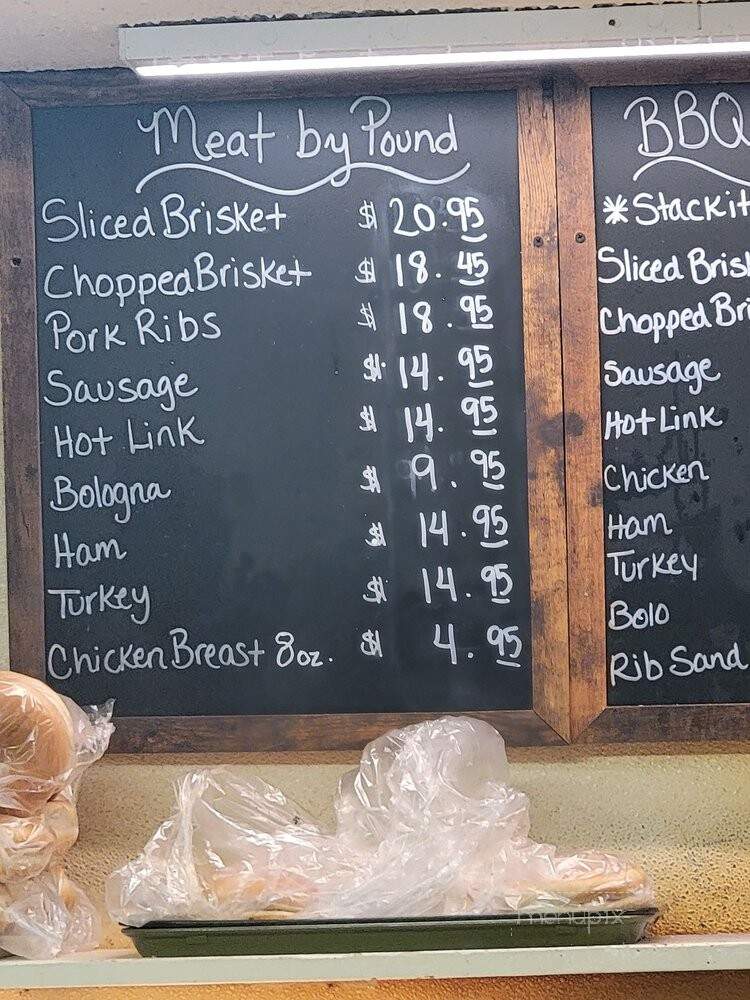 Meat by Pound
Sliced Brisket $ 20.95
Chopped Brisket $ 18.45
Pork Ribs $ 18.95
Sausage $ 14.95
Hot Link $ 14.95
Bologna $ 9.95
Ham $ 14.95
Turkey $ 14.95
Chicken Breast 8oz. $ 4.95
BBQ
*Stackit
Sliced Brisk
Chopped Bri
Sausage
Hot Link
Chicken
Ham
Turkey
Bolo
Rib Sand
menupix